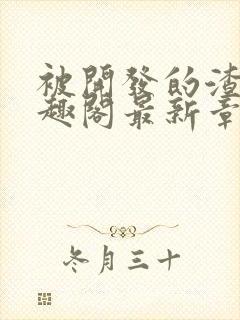 被開發的渣
趣閣最新章
冬月三十